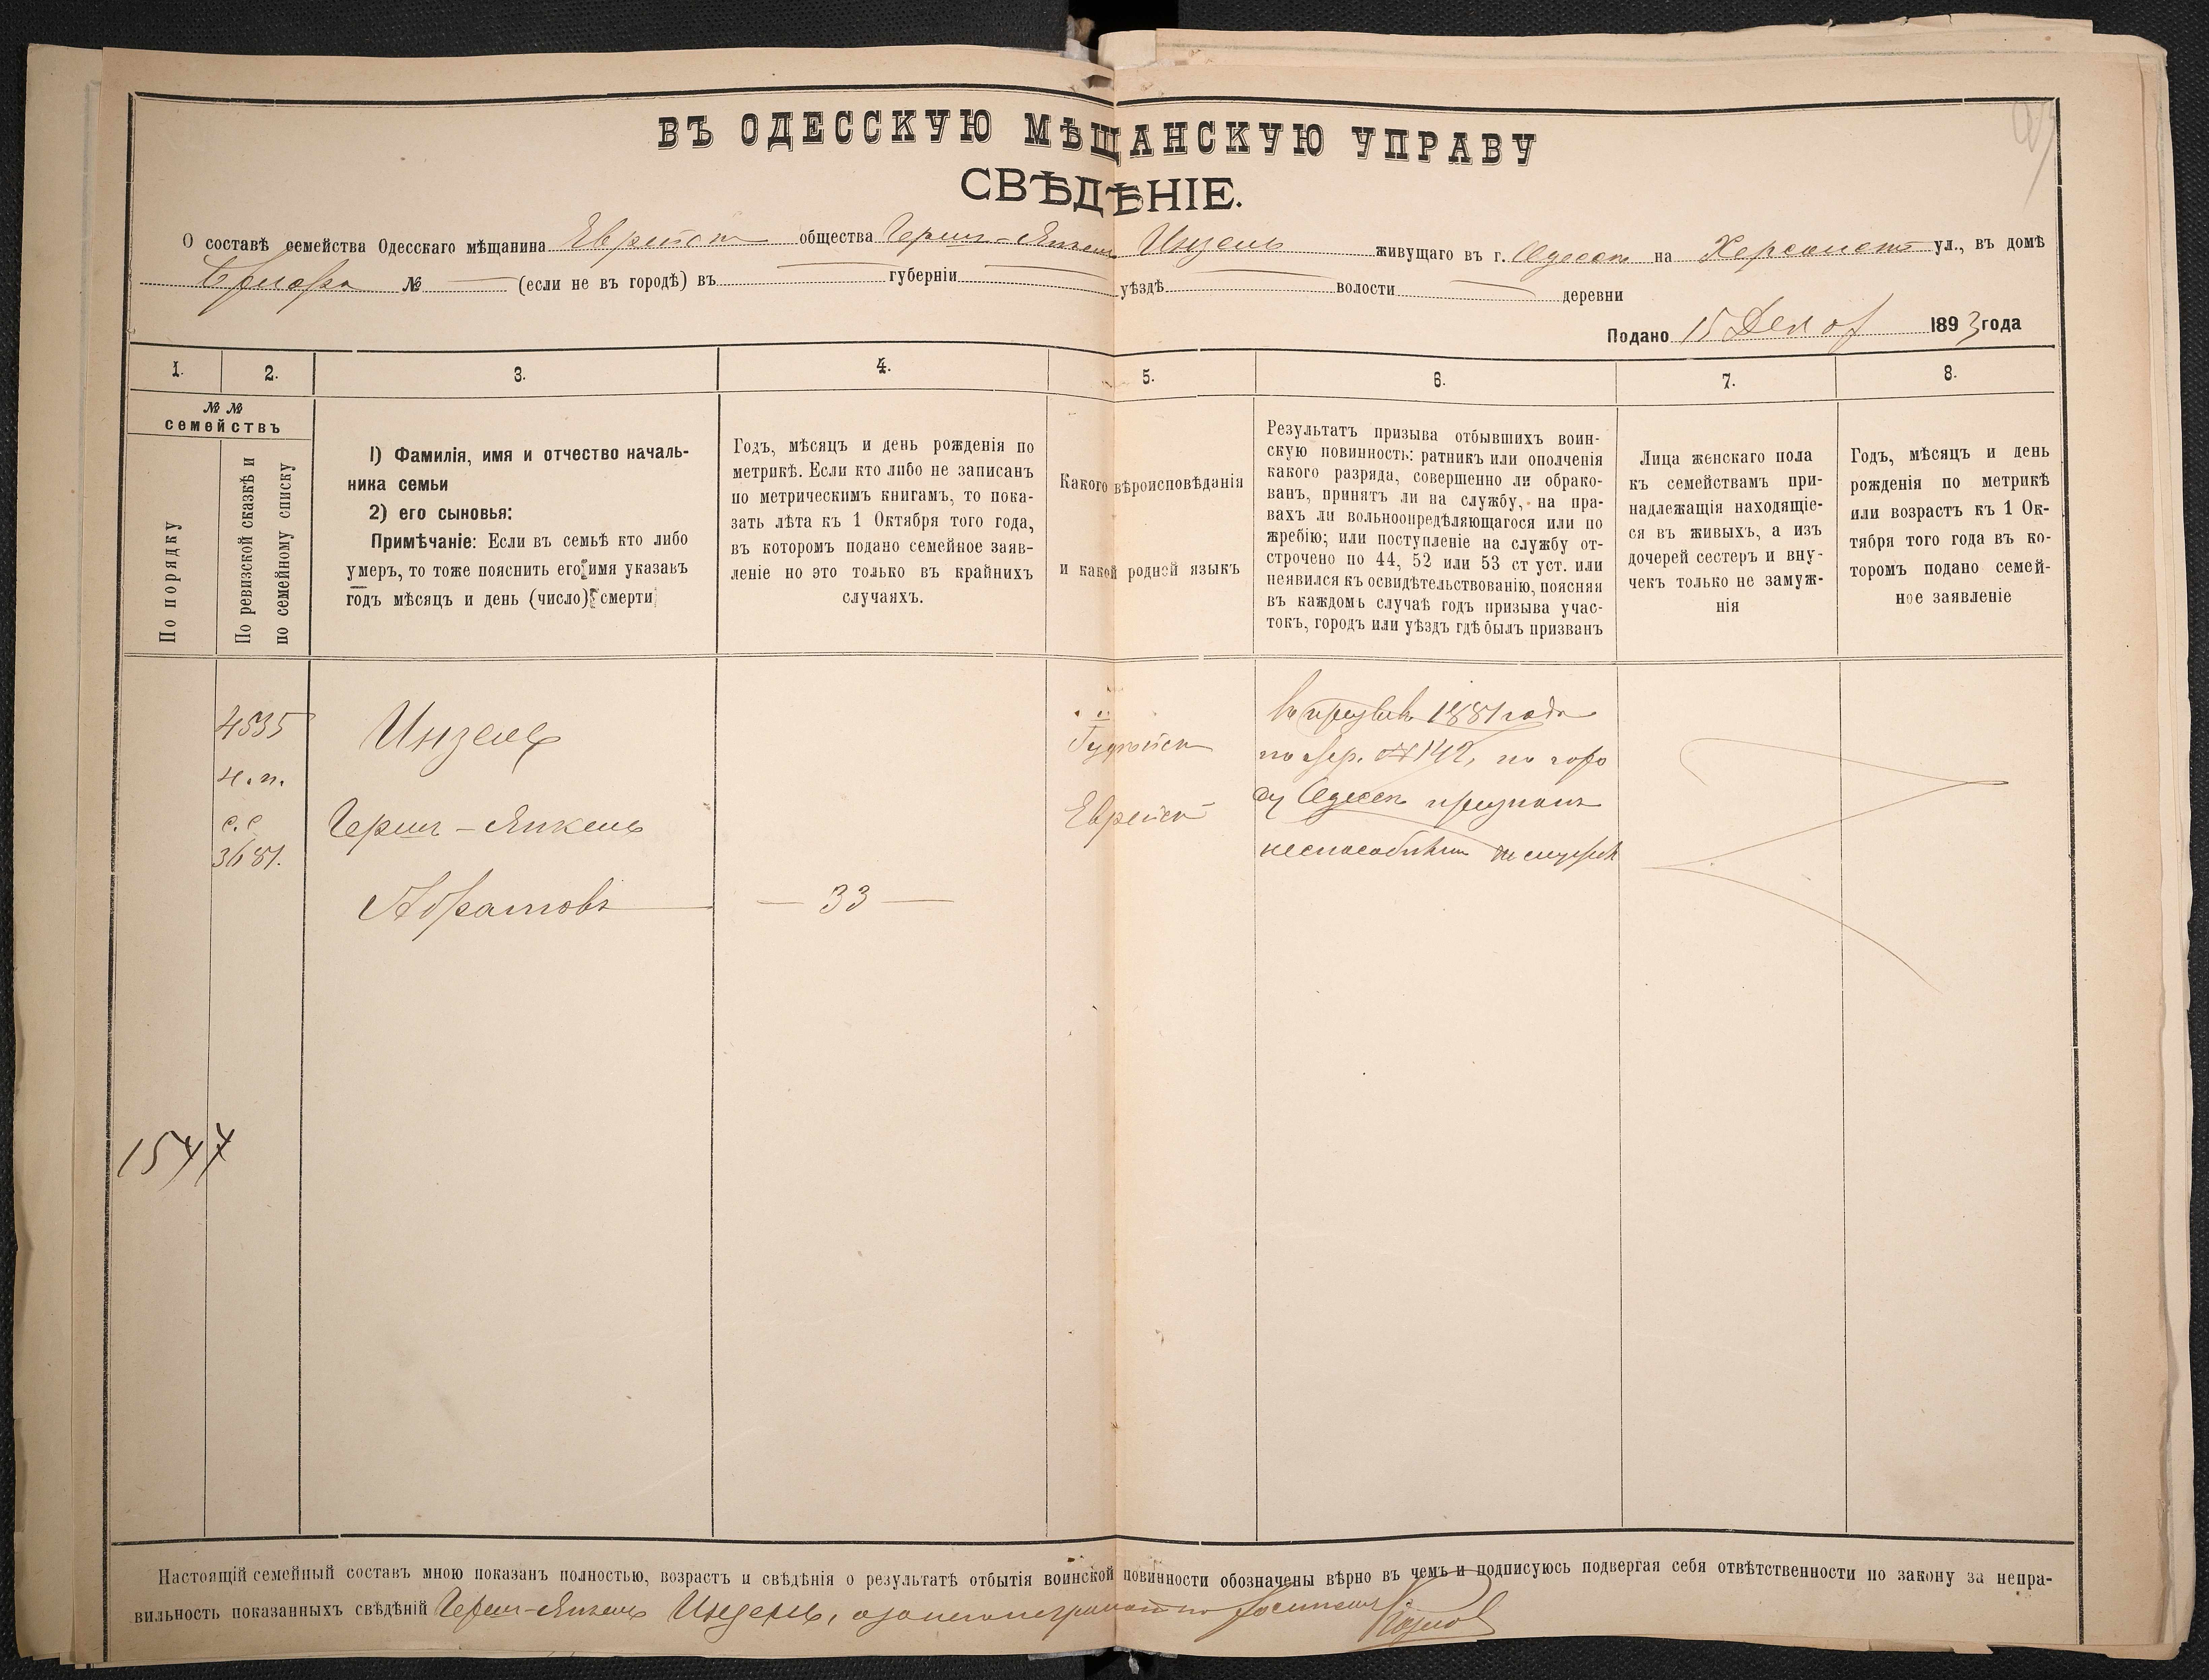 ВЪ ОДЕССКУЮ МѢЩАНСКУЮ УПРАВУ
СВѢДѢНІЕ.
О составѣ семейства Одесскаго мѣщанина Еврейск общества Герш-Янкель Инзель живущаго въ г. Одессѣ на Херсонской ул., въ домѣ
№ — (если не въ городѣ) въ — губерніи — уѣздѣ — волости — деревни
Подано 15 1893 года
1. 2. 3. 4. 5. 6. 7. 8.
№ №
семействъ
По порядку
По ревизской сказкѣ и
по семейному списку
1) Фамилія, имя и отчество началь-
ника семьи
2) его сыновья:
Примѣчаніе: Если въ семьѣ кто либо
умеръ, то тоже пояснить его имя указавъ
годъ мѣсяцъ и день (число) смерти
Годъ, мѣсяцъ и день рожденія по
метрикѣ. Если кто либо не записанъ
по метрическимъ книгамъ, то пока-
зать лѣта къ 1 Октября того года,
въ которомъ подано семейное заяв-
леніе но это только въ крайнихъ
случаяхъ.
Какого вѣроисповѣданія
и какой родной языкъ
Результатъ призыва отбывшихъ воин-
скую повинность: ратникъ или ополченія
какого разряда, совершенно ли обрако-
ванъ, принятъ ли на службу, на пра-
вахъ ли вольноопредѣляющагося или по
жребію; или поступленіе на службу от-
строчено по 44, 52 или 53 ст уст. или
неявился къ освидѣтельствованію, поясняя
въ каждомъ случаѣ годъ призыва учас-
токъ, городъ или уѣздъ гдѣ былъ призванъ
Лица женскаго пола
къ семействамъ при-
надлежащія находящіе-
ся въ живыхъ, а изъ
дочерей сестеръ и вну-
чекъ только не замуж-
нія
Годъ, мѣсяцъ и день
рожденія по метрикѣ
или возрастъ къ 1 Ок-
тября того года въ ко-
торомъ подано семей-
ное заявленіе
4535
н.п.
с.с
3681.
Инзель
Герш-Янкель
Абрамовъ
— 33 —
Іудейск
Еврейск
въ призывѣ 1881 года
по жер. № 142, по горо
ду Одессѣ признанъ
неспособнымъ къ службѣ
1547
Настоящій семейный составъ мною показанъ полностью, возрастъ и свѣдѣнія о результатѣ отбытія воинской повинности обозначены вѣрно въ чемъ и подписуюсь подвергая себя отвѣтственности по закону за непра-
вильность показанныхъ свѣдѣній Герш-Янкель Инзель, а за него неграмотнаго